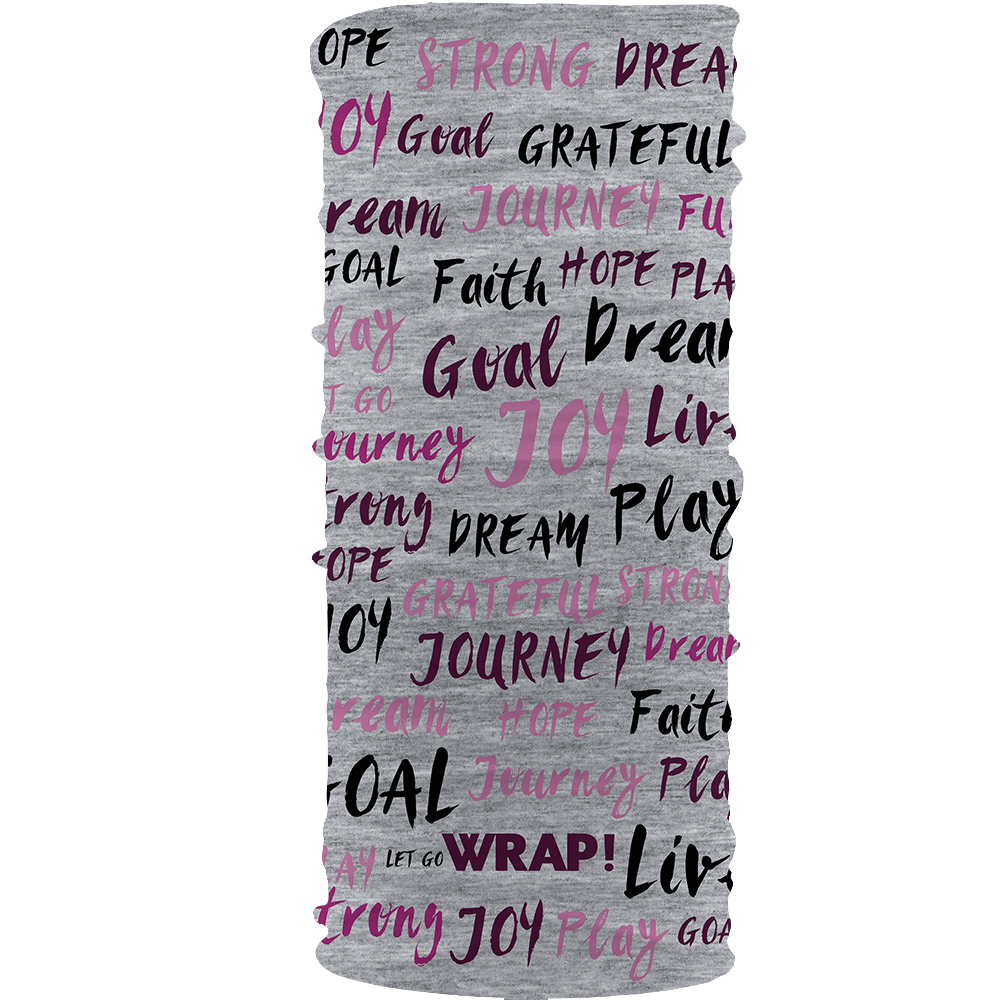 OPE STRONG DREA
JOY Goal GRATEFUL
ream JOURNEY FU
GOAL Faith HOPE PLA
lay Goal Drea
T GO JOY Liv
ourney
trong DREAM Play
OPE GRATEFUL STRON
JOY JOURNEY Drea
ream HOPE Fait
GOAL Journey Pla
LAY LET GO WRAP! Liv
trong JOY Play GOA